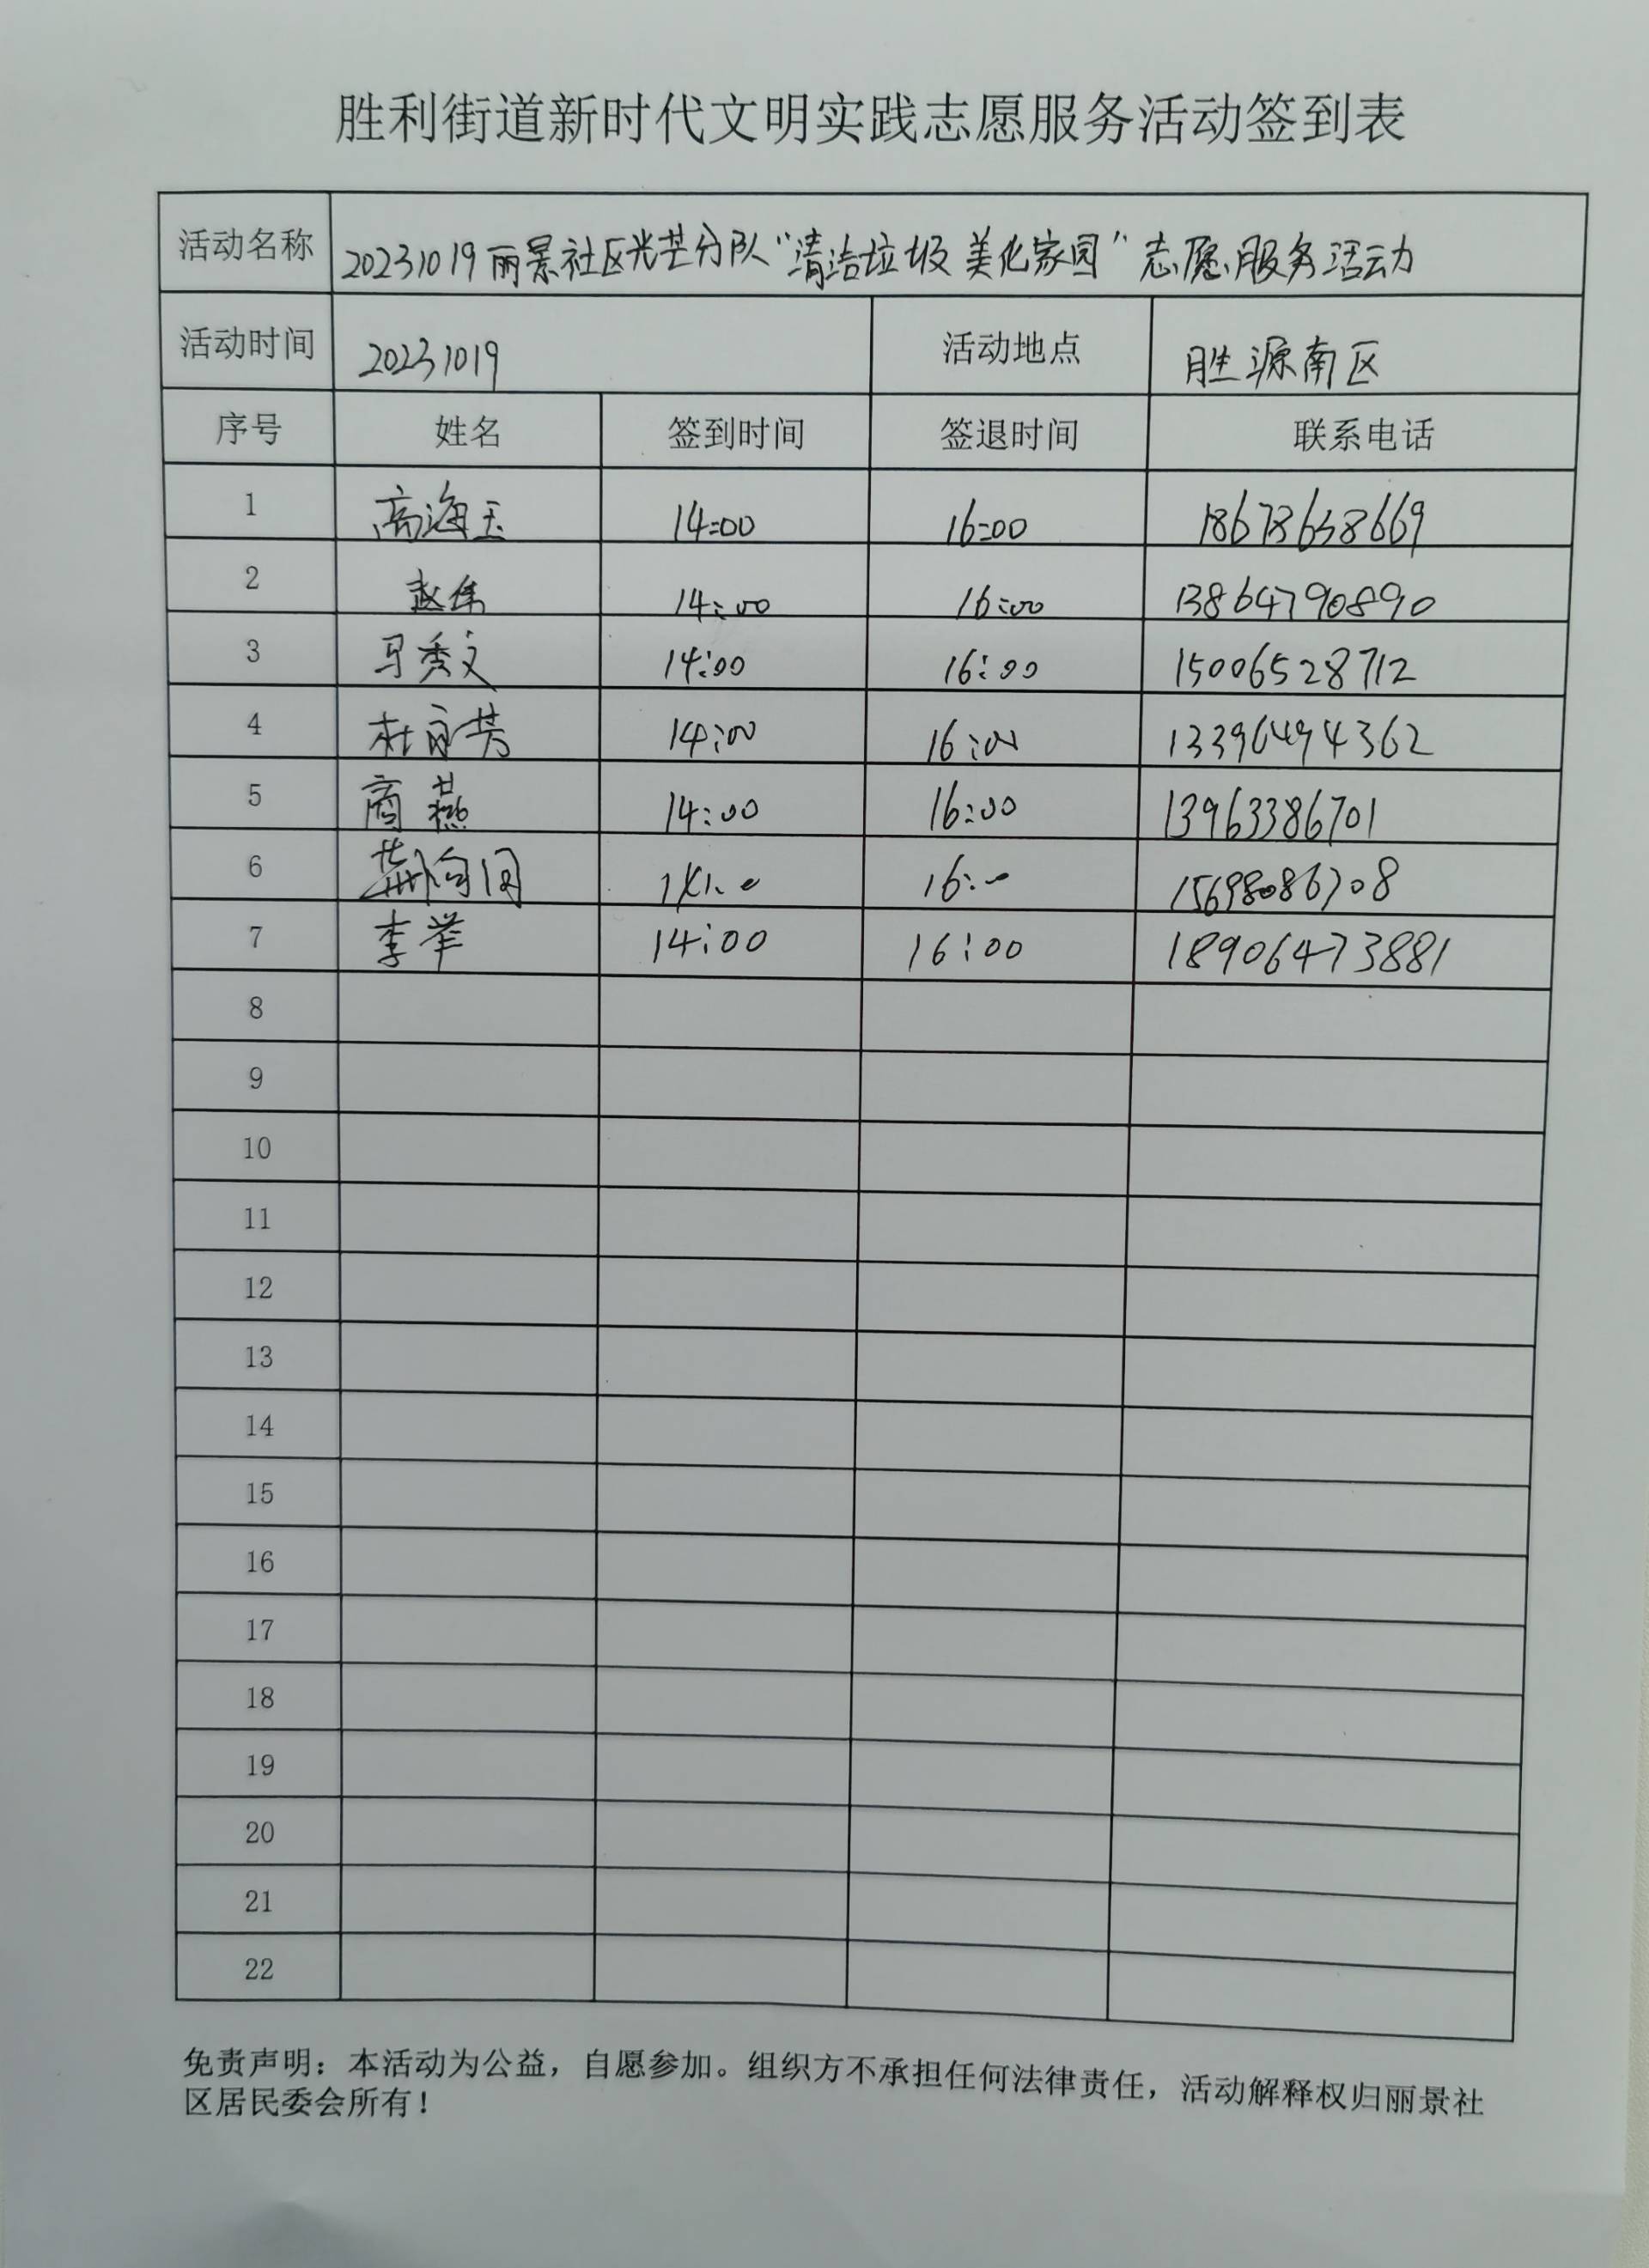 胜利街道新时代文明实践志愿服务活动签到表
活动名称 20231019丽景社区光芒分队“清洁垃圾 美化家园”志愿服务活动
活动时间 20231019 活动地点 胜源南区
序号 姓名 签到时间 签退时间 联系电话
1 高海玉 14:00 16:00 18678638669
2 赵伟 14:00 16:00 13864790890
3 马秀文 14:00 16:00 15006528712
4 杜永芳 14:00 16:00 13396494362
5 商燕 14:00 16:00 13963386701
6 16:00 15698086708
7 李举 14:00 16:00 18906473881
8
9
10
11
12
13
14
15
16
17
18
19
20
21
22
免责声明：本活动为公益，自愿参加。组织方不承担任何法律责任，活动解释权归丽景社
区居民委会所有！